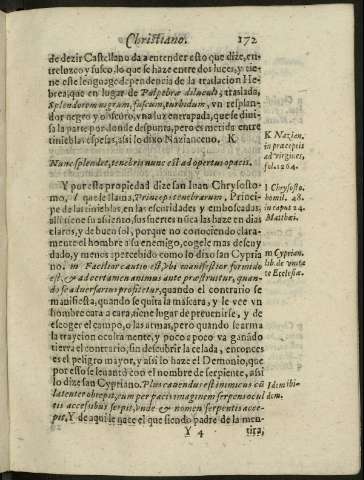 Christiano. 172
de dezir Castellano da a entender esto que dize, en-
treluzco y fusco, lo que se haze entre dos luces, y tie-
ne este lenguage dependencia de la traslacion He-
brea, que en lugar de Palpebræ diluculi; traslada,
Splendorem nigrum, fuscum, turbidum, vn resplan-
dor negro y obscuro, vna luz enrapada, que se diui-
sa la parte por donde despunta, pero es metida entre
tinieblas espesas, assi lo dixo Nazianceno. K
Nunc splendet, tenebris nunc est adopertus opacis.
Y por esta propiedad dize san Iuan Chrysosto-
mo, l que se llama, Princeps tenebrarum, Princi-
pe de las tinieblas, en las escuridades y emboscadas,
alli tiene su assiento, sus suertes nũca las haze en dias
claros, y de buen sol, porque no conociendo clara-
mente el hombre a su enemigo, cogele mas descuy
dado, y menos apercebido como lo dixo san Cypria
no. m Facilior cautio est, vbi manifestior formido
est, & ad certamen animus ante præstruitur, quan-
do se aduersarius profitetur, quando el contrario se
manifiesta, quando se quita la máscara, y le vee vn
hombre cara a cara, tiene lugar de preuenirse, y de
escoger el campo, o las armas, pero quando se arma
la trayción ocultamente, y poco a poco va ganãdo
tierra el contrario, sin descubrir la celada, entonces
es el peligro mayor, y assi lo haze el Demonio, que
por esso se leuantò con el nombre de serpiente, assi
lo dize san Cypriano. Plus cauendus est inimicus cũ
latenter obrepit, cum per pacis imaginem serpens ocul
tis accessibus serpit, vnde & nomen serpentis acce-
pit, Y de aqui le nace el que siendo padre de la men-
Y 4 tira,
K Nazian.
in præceptis
ad virgines,
fol. 1264.
l Chrysosto.
homil. 48.
in caput 24.
Matthæi.
m Cyprian.
lib. de vnita
te Ecclesiæ.
Idem ibi-
dem.